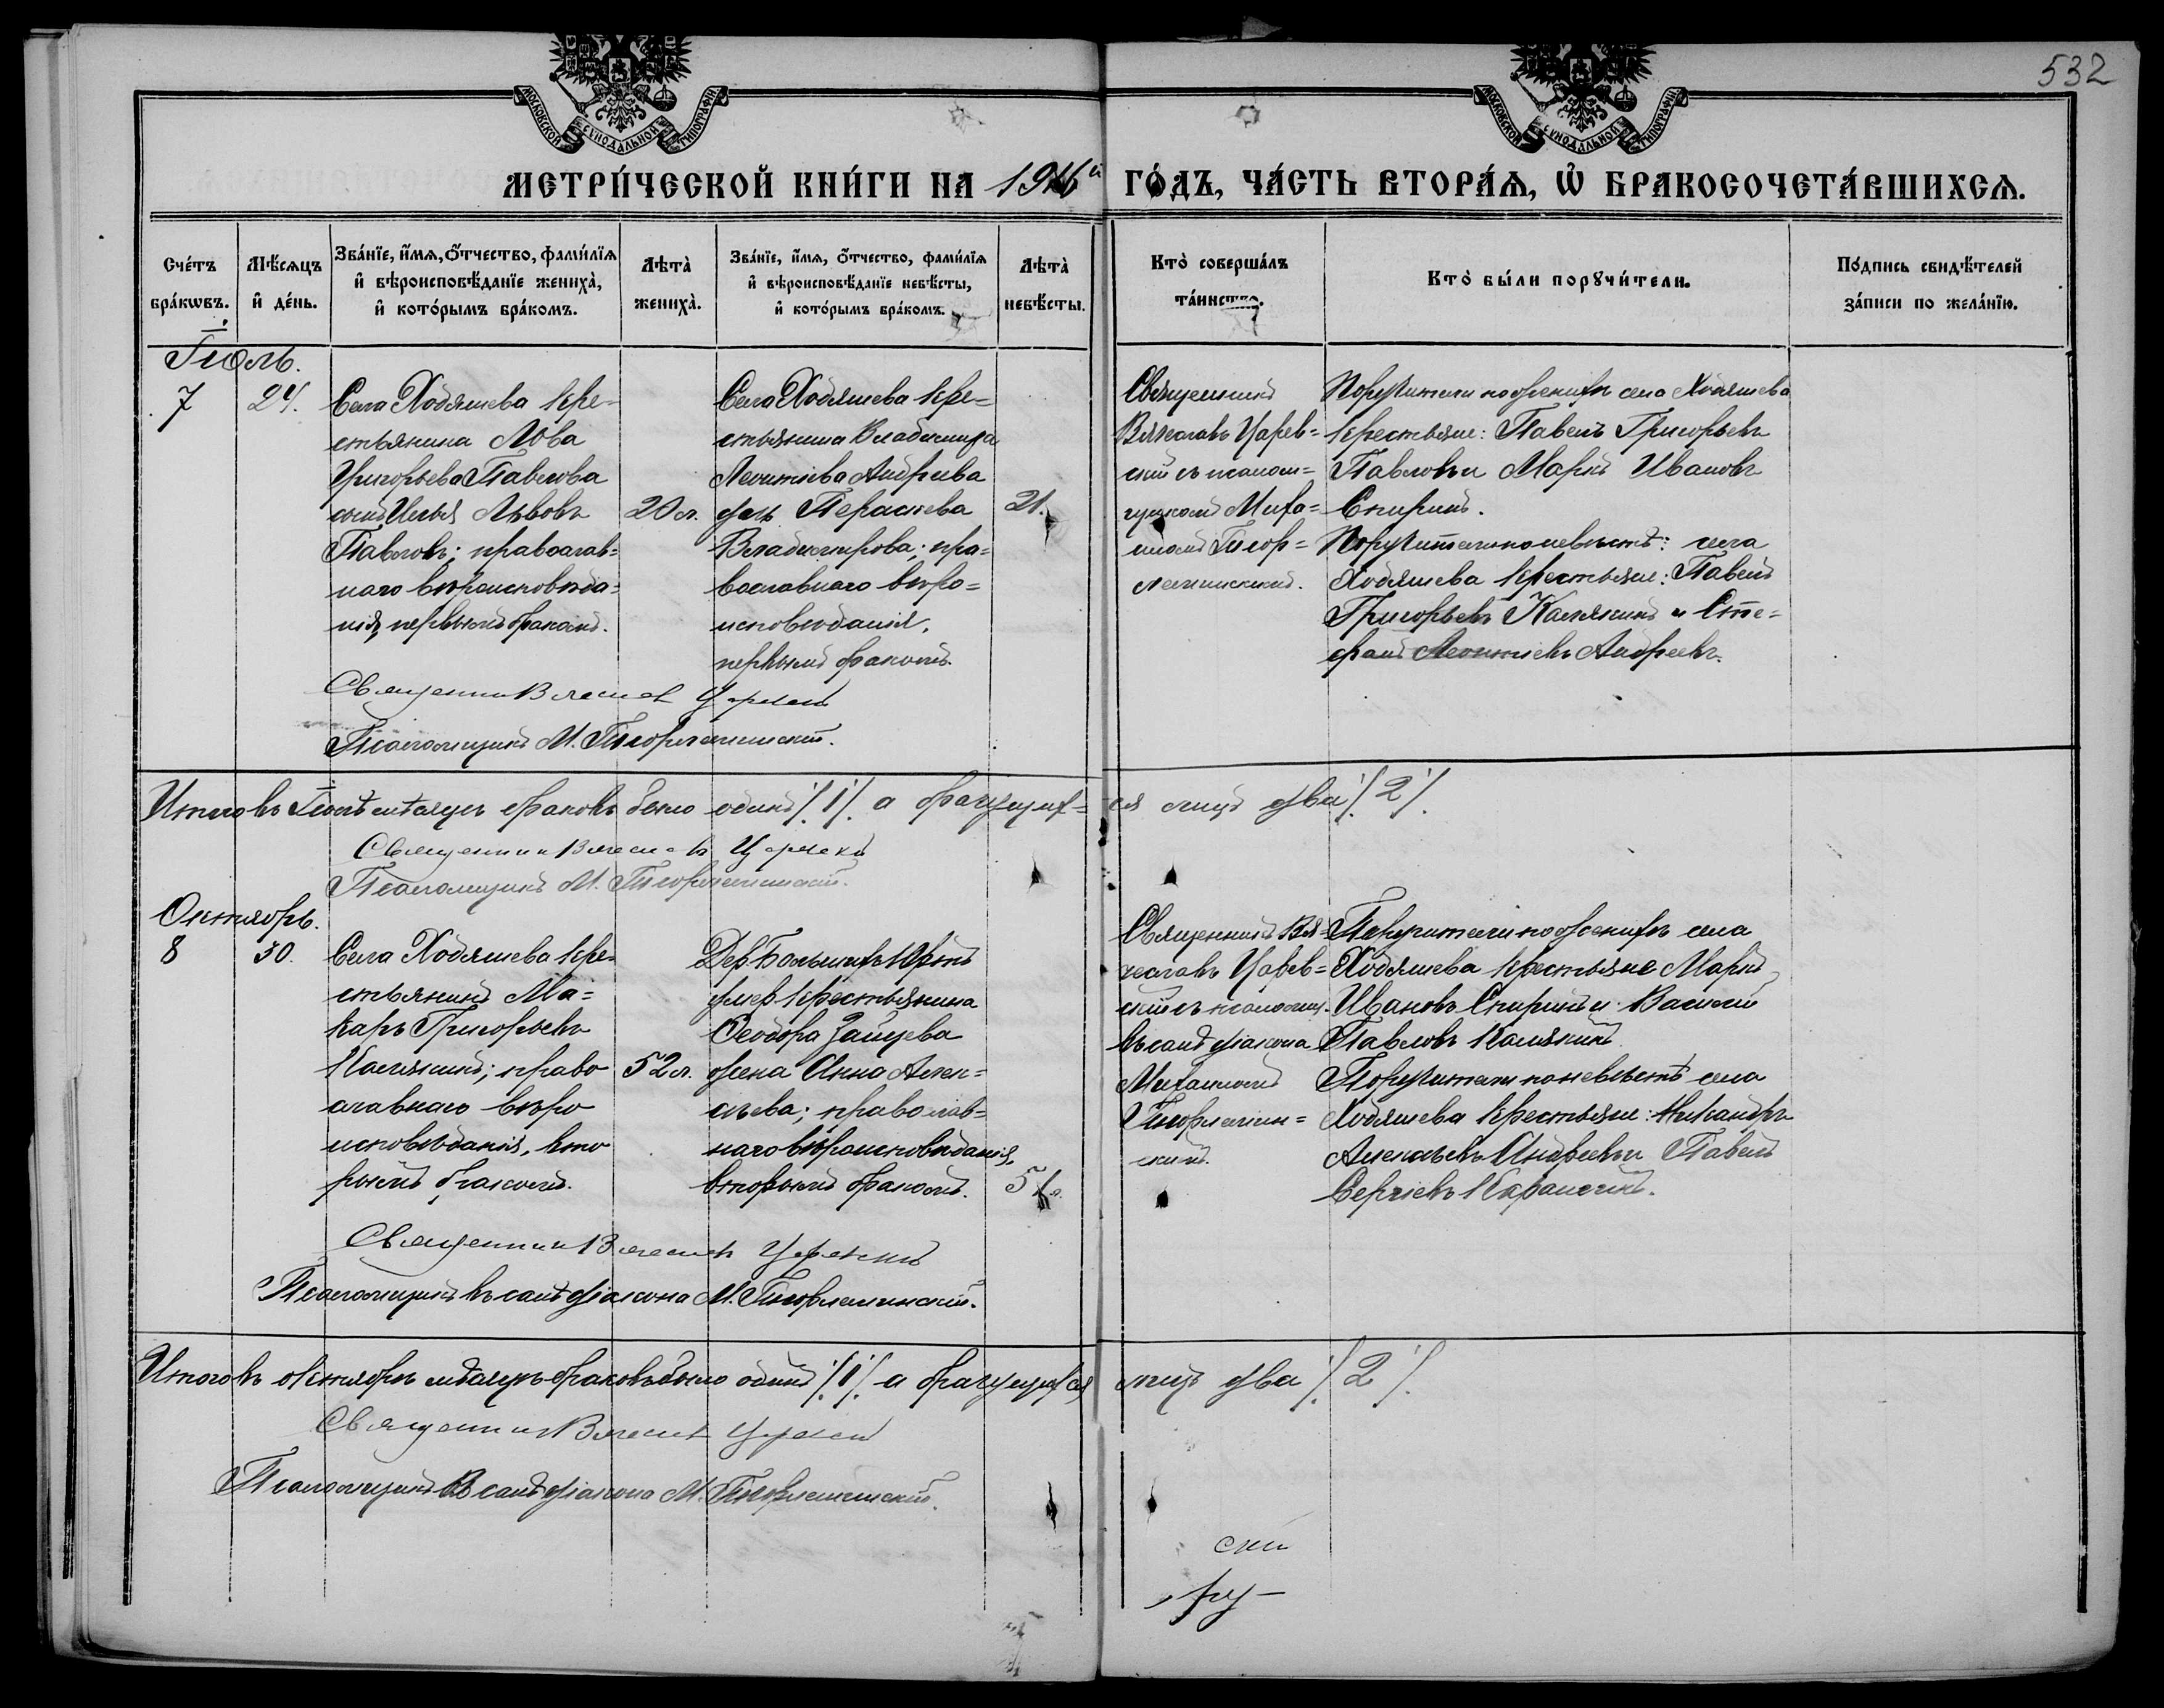 532
МОСКОВСКОЙ СУНОДАЛЬНОЙ ТИПОГРАФІИ
МОСКОВСКОЙ СУНОДАЛЬНОЙ ТИПОГРАФІИ
МЕТРИ́ЧЕСКОЙ КНИ́ГИ НА 1916й ГО́ДЪ, ЧА́СТЬ ВТОРА́Ѧ, Ѽ БРАКОСОЧЕТА́ВШИХСѦ.
Сче́тъ бра́кѡвъ.
Мѣ́сѧцъ и҆ де́нь.
Зва́нїе, и҆́мѧ, ѻ҆́тчество, фами́лїѧ
и҆ вѣроисповѣ́данїе жениха̀,
и҆ кото́рымъ бра́комъ.
Лѣта̀ жениха̀.
Зва́нїе, и҆́мѧ, ѻ҆́тчество, фами́лїѧ
и҆ вѣроисповѣ́данїе невѣ́сты,
и҆ кото́рымъ бра́комъ.
Лѣта̀ невѣ́сты.
Кто̀ соверша́лъ та́инство.
Кто̀ бы́ли порꙋчи́тели.
По́дпись свидѣ́телей за́писи по жела́нїю.
Іюль.
7
24.
Села Ходяшева кре=
стьянина Льва
Григорьева Павлова
сынъ Илья Львовъ
Павловъ; православ=
наго вѣроисповѣда=
нія, первымъ бракомъ.
20 л.
Села Ходяшева кре=
стьянина Владимира
Леонтіева Андреева
дочь Параскева
Владимирова; пра=
вославнаго вѣро=
исповѣданія,
первымъ бракомъ.
21.
Священникъ
Вячеславъ Царев=
скій съ псалом=
щикомъ Миха=
иломъ
Поручители по женихѣ села Ходяшева
крестьяне: Павелъ Григорьевъ
Павловъ и Маркъ Ивановъ
Спиринъ.
Поручители по невѣстѣ: села
Ходяшева крестьяне: Павелъ
Григорьевъ Калякинъ и Сте=
фанъ Леонтіевъ Андреевъ.
Священникъ Вячеславъ Царевскій
Псаломщикъ М.
Итого въ Іюлѣ мѣсяцѣ браковъ было одинъ /1/. а брачущих=ся лицъ два /2/.
Священникъ Вячеславъ Царевскій
Псаломщикъ М.
Октябрь.
8
30.
Села Ходяшева кре=
стьянинъ Ма=
каръ Григорьевъ
Калякинъ; право
славнаго вѣро
исповѣданія, вто
рымъ бракомъ.
52 л.
Дер. Большихъ
умер. крестьянина
Ѳеодора Зайцева
жена Анна Алек=
сѣева; православ=
наго вѣроисповѣданія,
вторымъ бракомъ.
Священникъ Вя=
чеславъ Царев=
скій съ псаломщ.
въ санѣ діакона
Михаиломъ
скимъ.
Поручители по женихѣ села
Ходяшева крестьяне Маркъ
Ивановъ Спиринъ и Василій
Павловъ Калякинъ.
Поручители по невѣстѣ села
Ходяшева крестьяне: Никандръ
Алексѣевъ Андреевъ и Павелъ
Сергіевъ
Священникъ Вячеславъ Царевскій
Псаломщикъ въ санѣ діакона М.
Итого въ октябрѣ мѣсяцѣ браковъ было одинъ /1/. а брачущихся лицъ два /2/.
Священникъ Вячеславъ Царевскій
Псаломщикъ въ санѣ діакона М.
ски